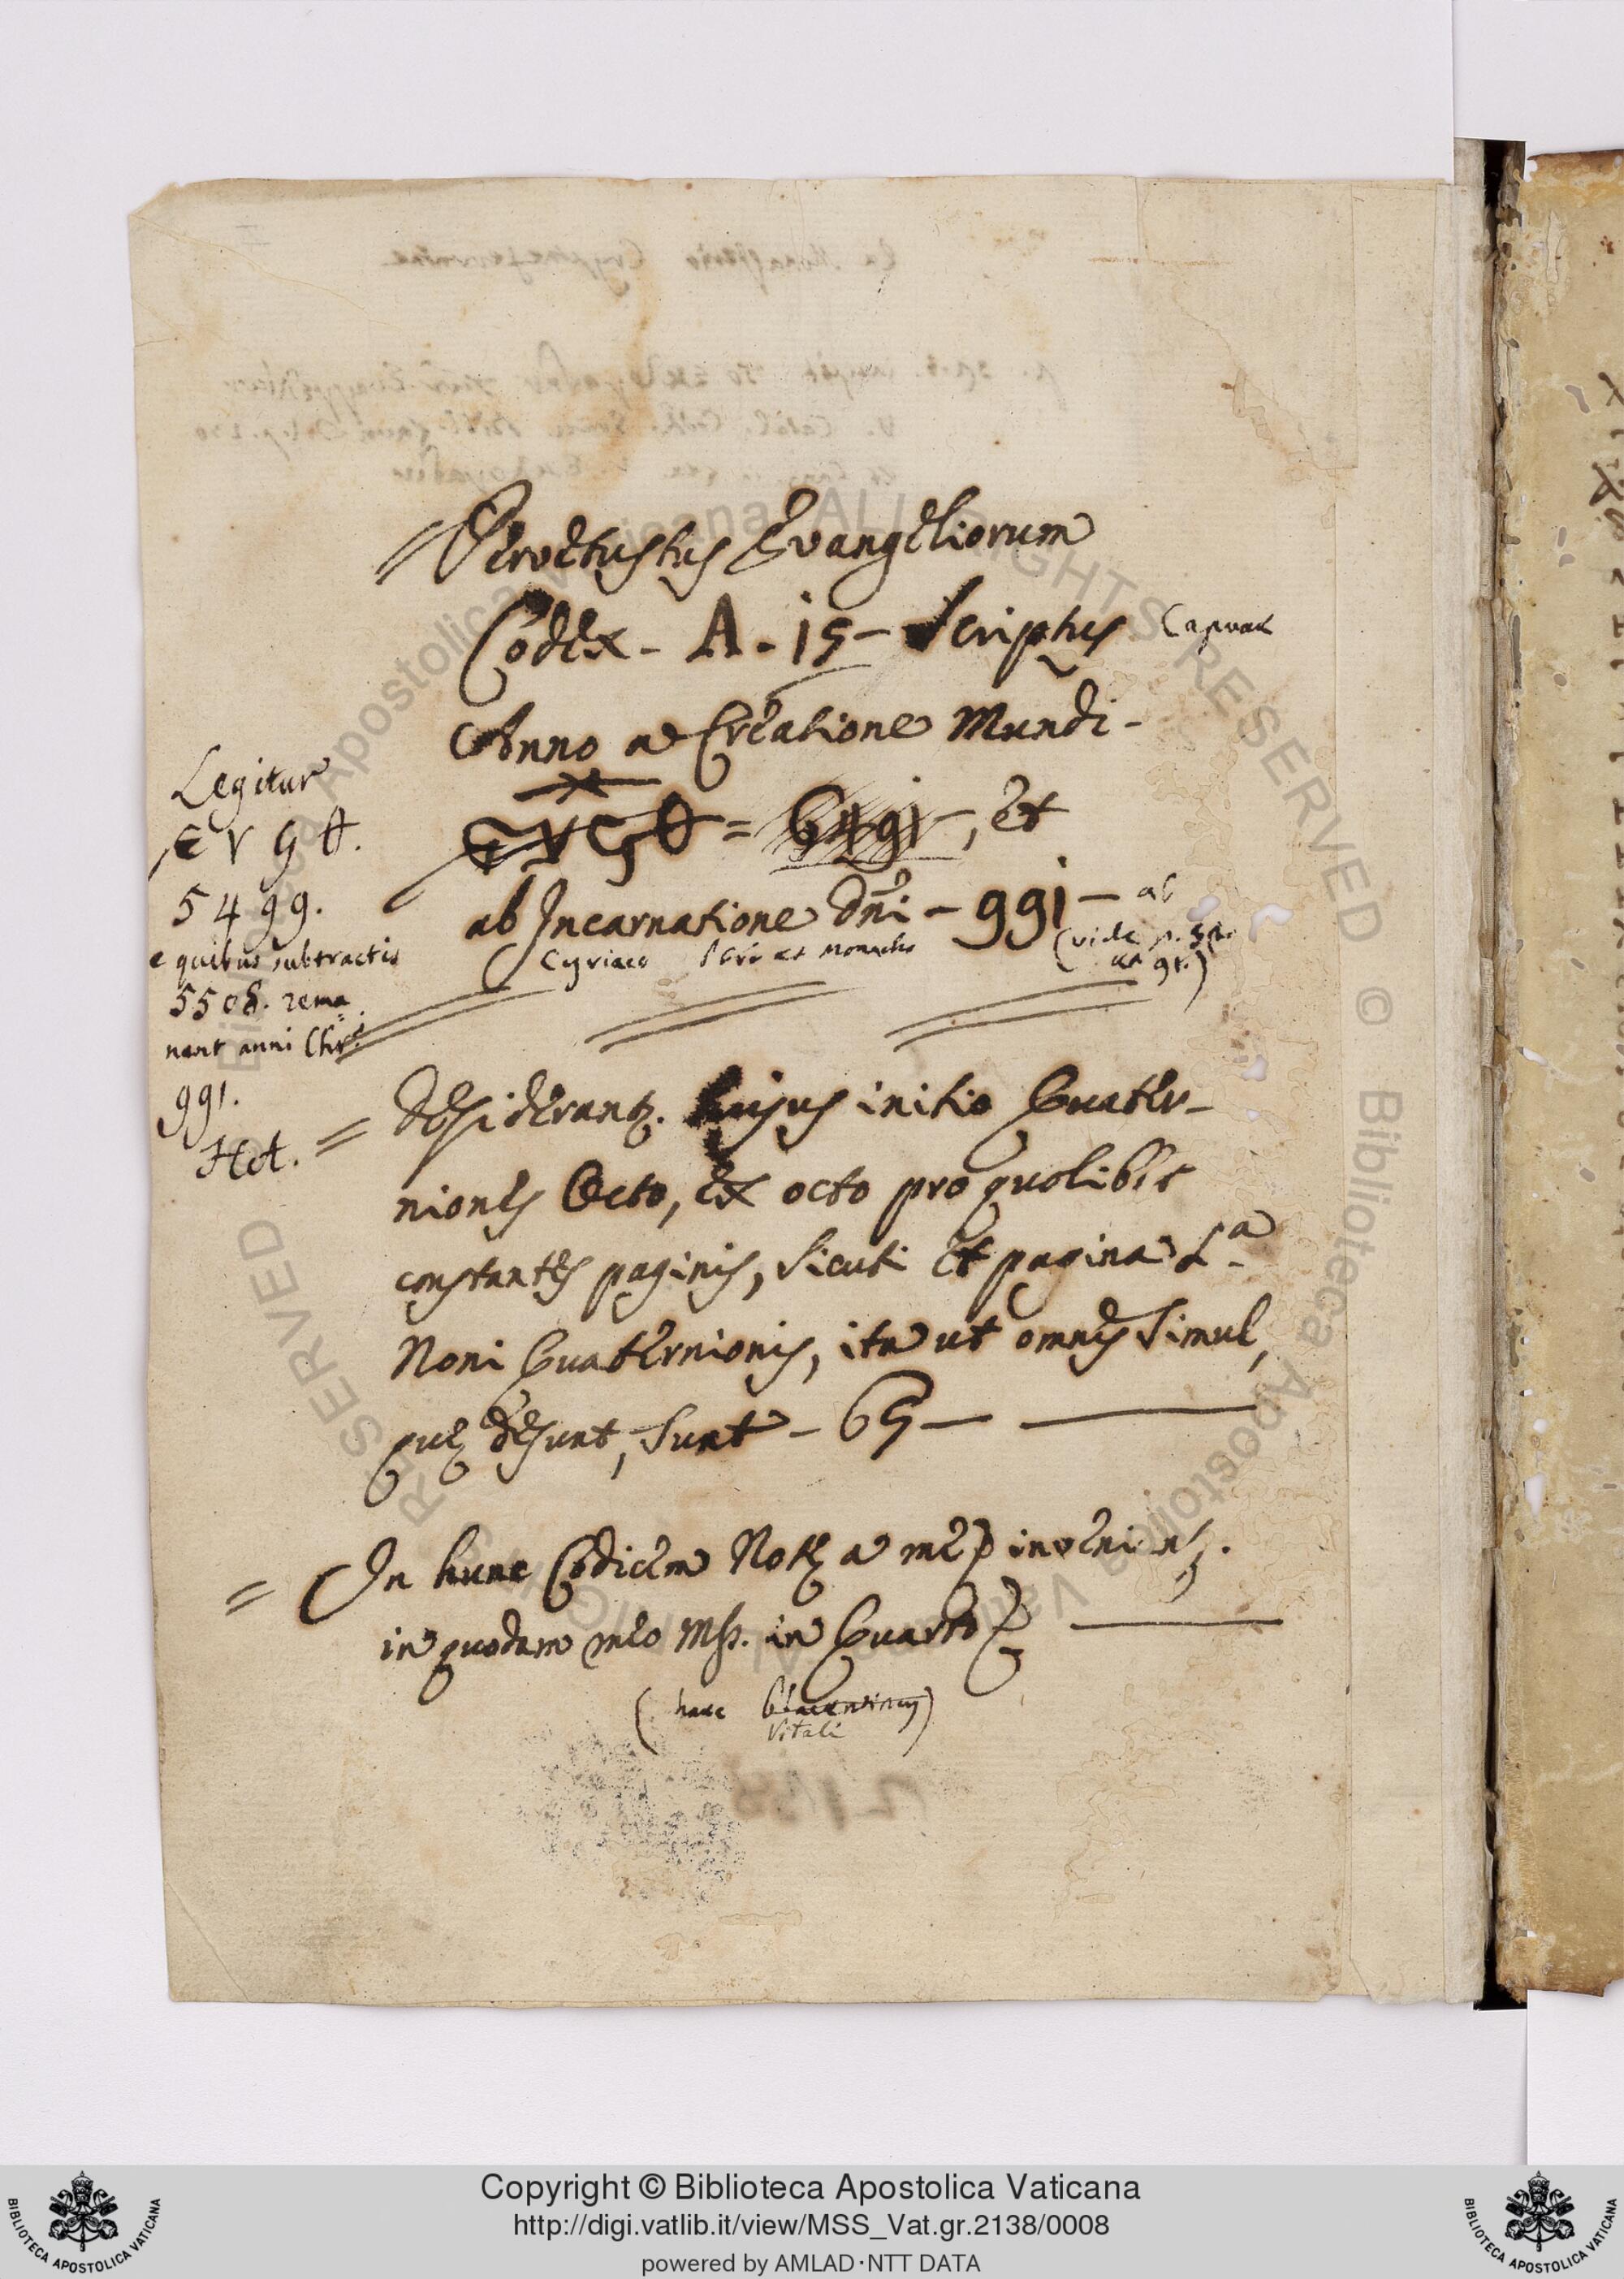 Pervetustus Evangeliorum
Codex - A. 15 - Scriptus Capuae
Anno a Creatione Mundi -
ςυςθ = 6491 -, et
ab Incarnatione Dñi - 991 - ab
Cyriaco et Monacho (vide p.
91.)
Legitur
͵ϛ υ ϟ θ.
5499.
e quibus subtractis
5508. rema=
nent anni Chri.
991.
= Desiderantꝫ. hujus initio Quater-
niones Octo, ex octo pro quolibet
constantes paginis, sicuti et pagina p.ª
Noni Quaternionis, ita ut omnes simul,
quę desunt, sunt - 65 -
= In hunc Codicem Notę a me inveniunꝫ.
in quodam meo Mss. in Quarto
(haec Placentinus)
Vitali
Copyright © Biblioteca Apostolica Vaticana
http://digi.vatlib.it/view/MSS_Vat.gr.2138/0008
powered by AMLAD·NTT DATA
BIBLIOTECA APOSTOLICA VATICANA
BIBLIOTECA APOSTOLICA VATICANA